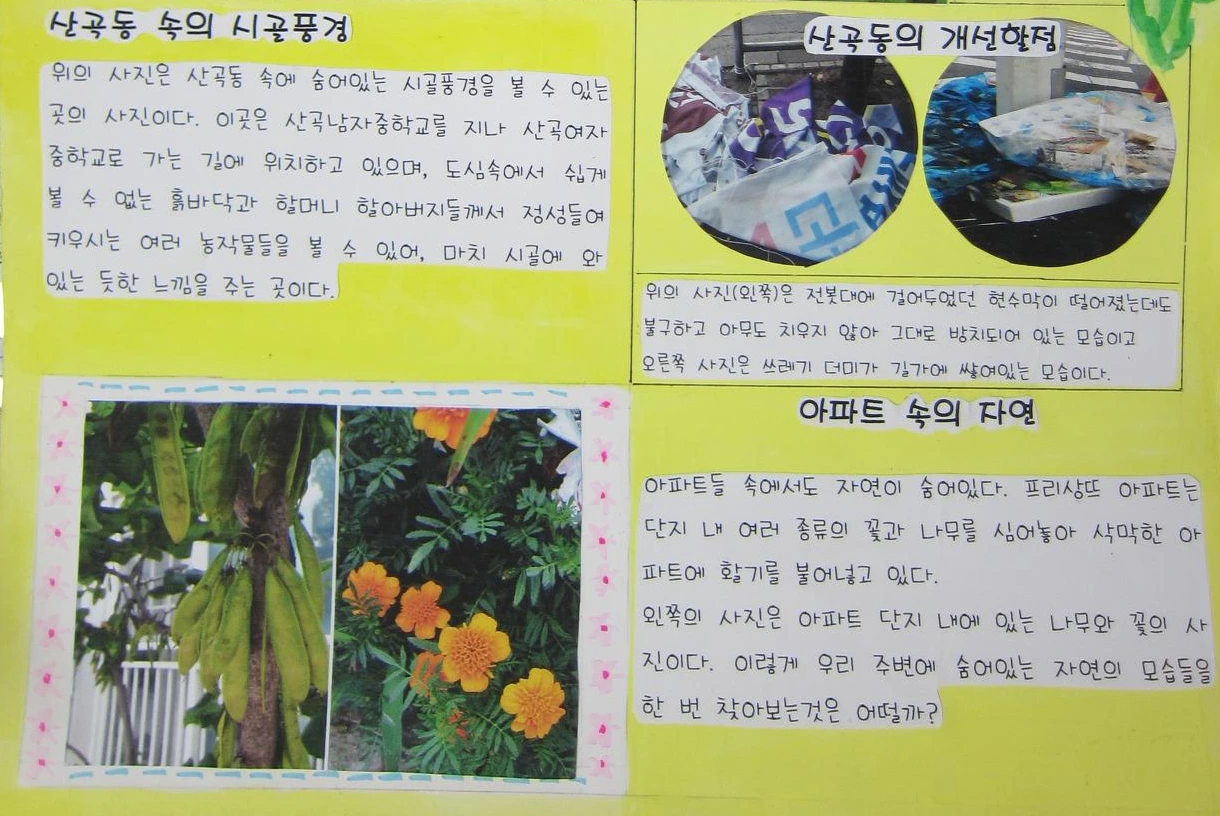 산곡동 속의 시골풍경
위의 사진은 산곡동 속에 숨어있는 시골풍경을 볼 수 있는
곳의 사진이다. 이곳은 산곡남자중학교를 지나 산곡여자
중학교로 가는 길에 위치하고 있으며, 도심속에서 쉽게
볼 수 없는 흙바닥과 할머니 할아버지들께서 정성들여
키우시는 여러 농작물들을 볼 수 있어, 마치 시골에 와
있는 듯한 느낌을 주는 곳이다.
산곡동의 개선할점
위의 사진(왼쪽)은 전봇대에 걸어두었던 현수막이 떨어졌는데도
불구하고 아무도 치우지 않아 그대로 방치되어 있는 모습이고
오른쪽 사진은 쓰레기 더미가 길가에 쌓여있는 모습이다.
아파트 속의 자연
아파트들 속에서도 자연이 숨어있다. 프리상뜨 아파트는
단지 내 여러 종류의 꽃과 나무를 심어놓아 삭막한 아
파트에 활기를 불어넣고 있다.
왼쪽의 사진은 아파트 단지 내에 있는 나무와 꽃의 사
진이다. 이렇게 우리 주변에 숨어있는 자연의 모습들을
한 번 찾아보는것은 어떨까?